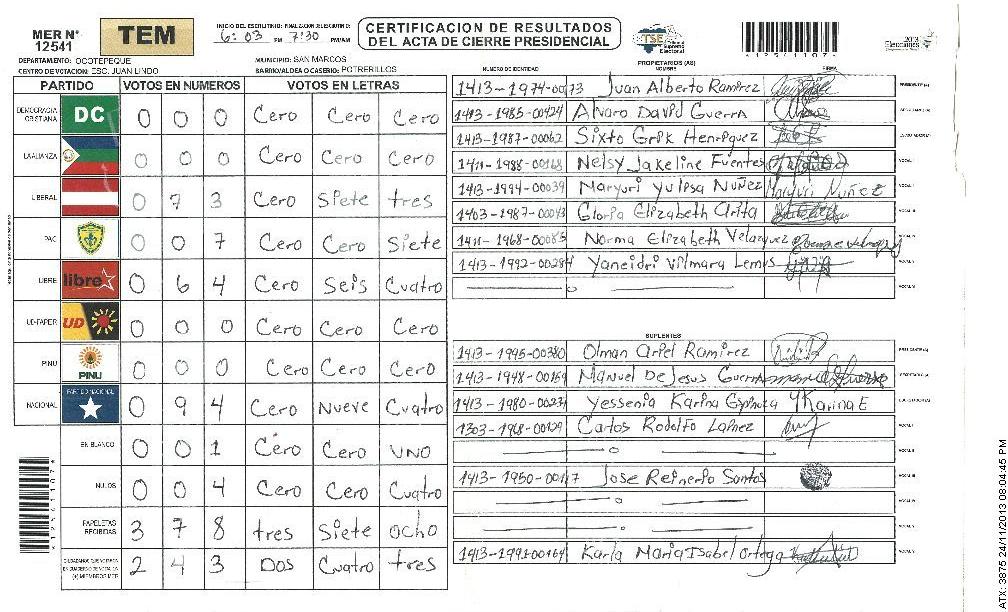 MER N°
12541
TEM
INICIO DEL ESCRUTINIO: FINALIZACION DEL ESCRUTINIO:
6:03 PM 7:30 PM/AM
CERTIFICACION DE RESULTADOS
DEL ACTA DE CIERRE PRESIDENCIAL
TSE
Tribunal
Supremo
Electoral
*12541107*
2013
Elecciones
DEPARTAMENTO: OCOTEPEQUE
MUNICIPIO: SAN MARCOS
CENTRO DE VOTACION: ESC. JUAN LINDO
BARRIO/ALDEA O CASERIO: POTRERILLOS
PARTIDO VOTOS EN NUMEROS VOTOS EN LETRAS
DEMOCRACIA CRISTIANA DC 0 0 0 Cero Cero Cero
LA ALIANZA 0 0 0 Cero Cero Cero
LIBERAL 0 7 3 Cero Siete tres
PAC 0 0 7 Cero Cero Siete
LIBRE libre 0 6 4 Cero Seis Cuatro
UD-FAPER UD 0 0 0 Cero Cero Cero
PINU PINU 0 0 0 Cero Cero Cero
NACIONAL PARTIDO NACIONAL 0 9 4 Cero Nueve Cuatro
EN BLANCO 0 0 1 Cero Cero UNO
NULOS 0 0 4 Cero Cero Cuatro
PAPELETAS RECIBIDAS 3 7 8 tres Siete ocho
CIUDADANOS QUE VOTARON EN CUADERNO DE VOTACION (+) MIEMBROS MER 2 4 3 Dos Cuatro tres
PROPIETARIOS (AS)
NUMERO DE IDENTIDAD NOMBRE FIRMA
1413-1974-00173 Juan Alberto Ramirez PRESIDENTE (A)
1413-1985-00424 Alvaro David Guerra SECRETARIO (A)
1413-1987-00062 Sixto Henriquez ESCRUTADOR (A)
1411-1988-00168 Nelsy Jakeline Fuentes VOCAL I
1413-1994-00039 Maryuri Yulissa Nuñez Maryuri Nuñez VOCAL II
1403-1987-00043 Gloria Elizabeth Arita VOCAL III
1411-1968-00085 Norma Elizabeth Velazquez VOCAL IV
1413-1992-00284 Yaneidri Vilmara Lemus VOCAL V
VOCAL VI
SUPLENTES
1413-1995-00380 Olman Ariel Ramirez PRESIDENTE (A)
1413-1948-00164 Manuel De Jesus Guerra SECRETARIO (A)
1413-1980-00231 Yessenia Karina Espinoza Y Karina E ESCRUTADOR (A)
1303-1968-00129 Carlos Rodolfo Lainez VOCAL I
VOCAL II
1413-1950-00117 Jose Reinerio Santos VOCAL III
VOCAL IV
VOCAL V
1413-1991-00164 Karla Maria Isabel Ortega VOCAL VI
*12541107*
ATX: 3875 24/11/2013 08:04:45 PM